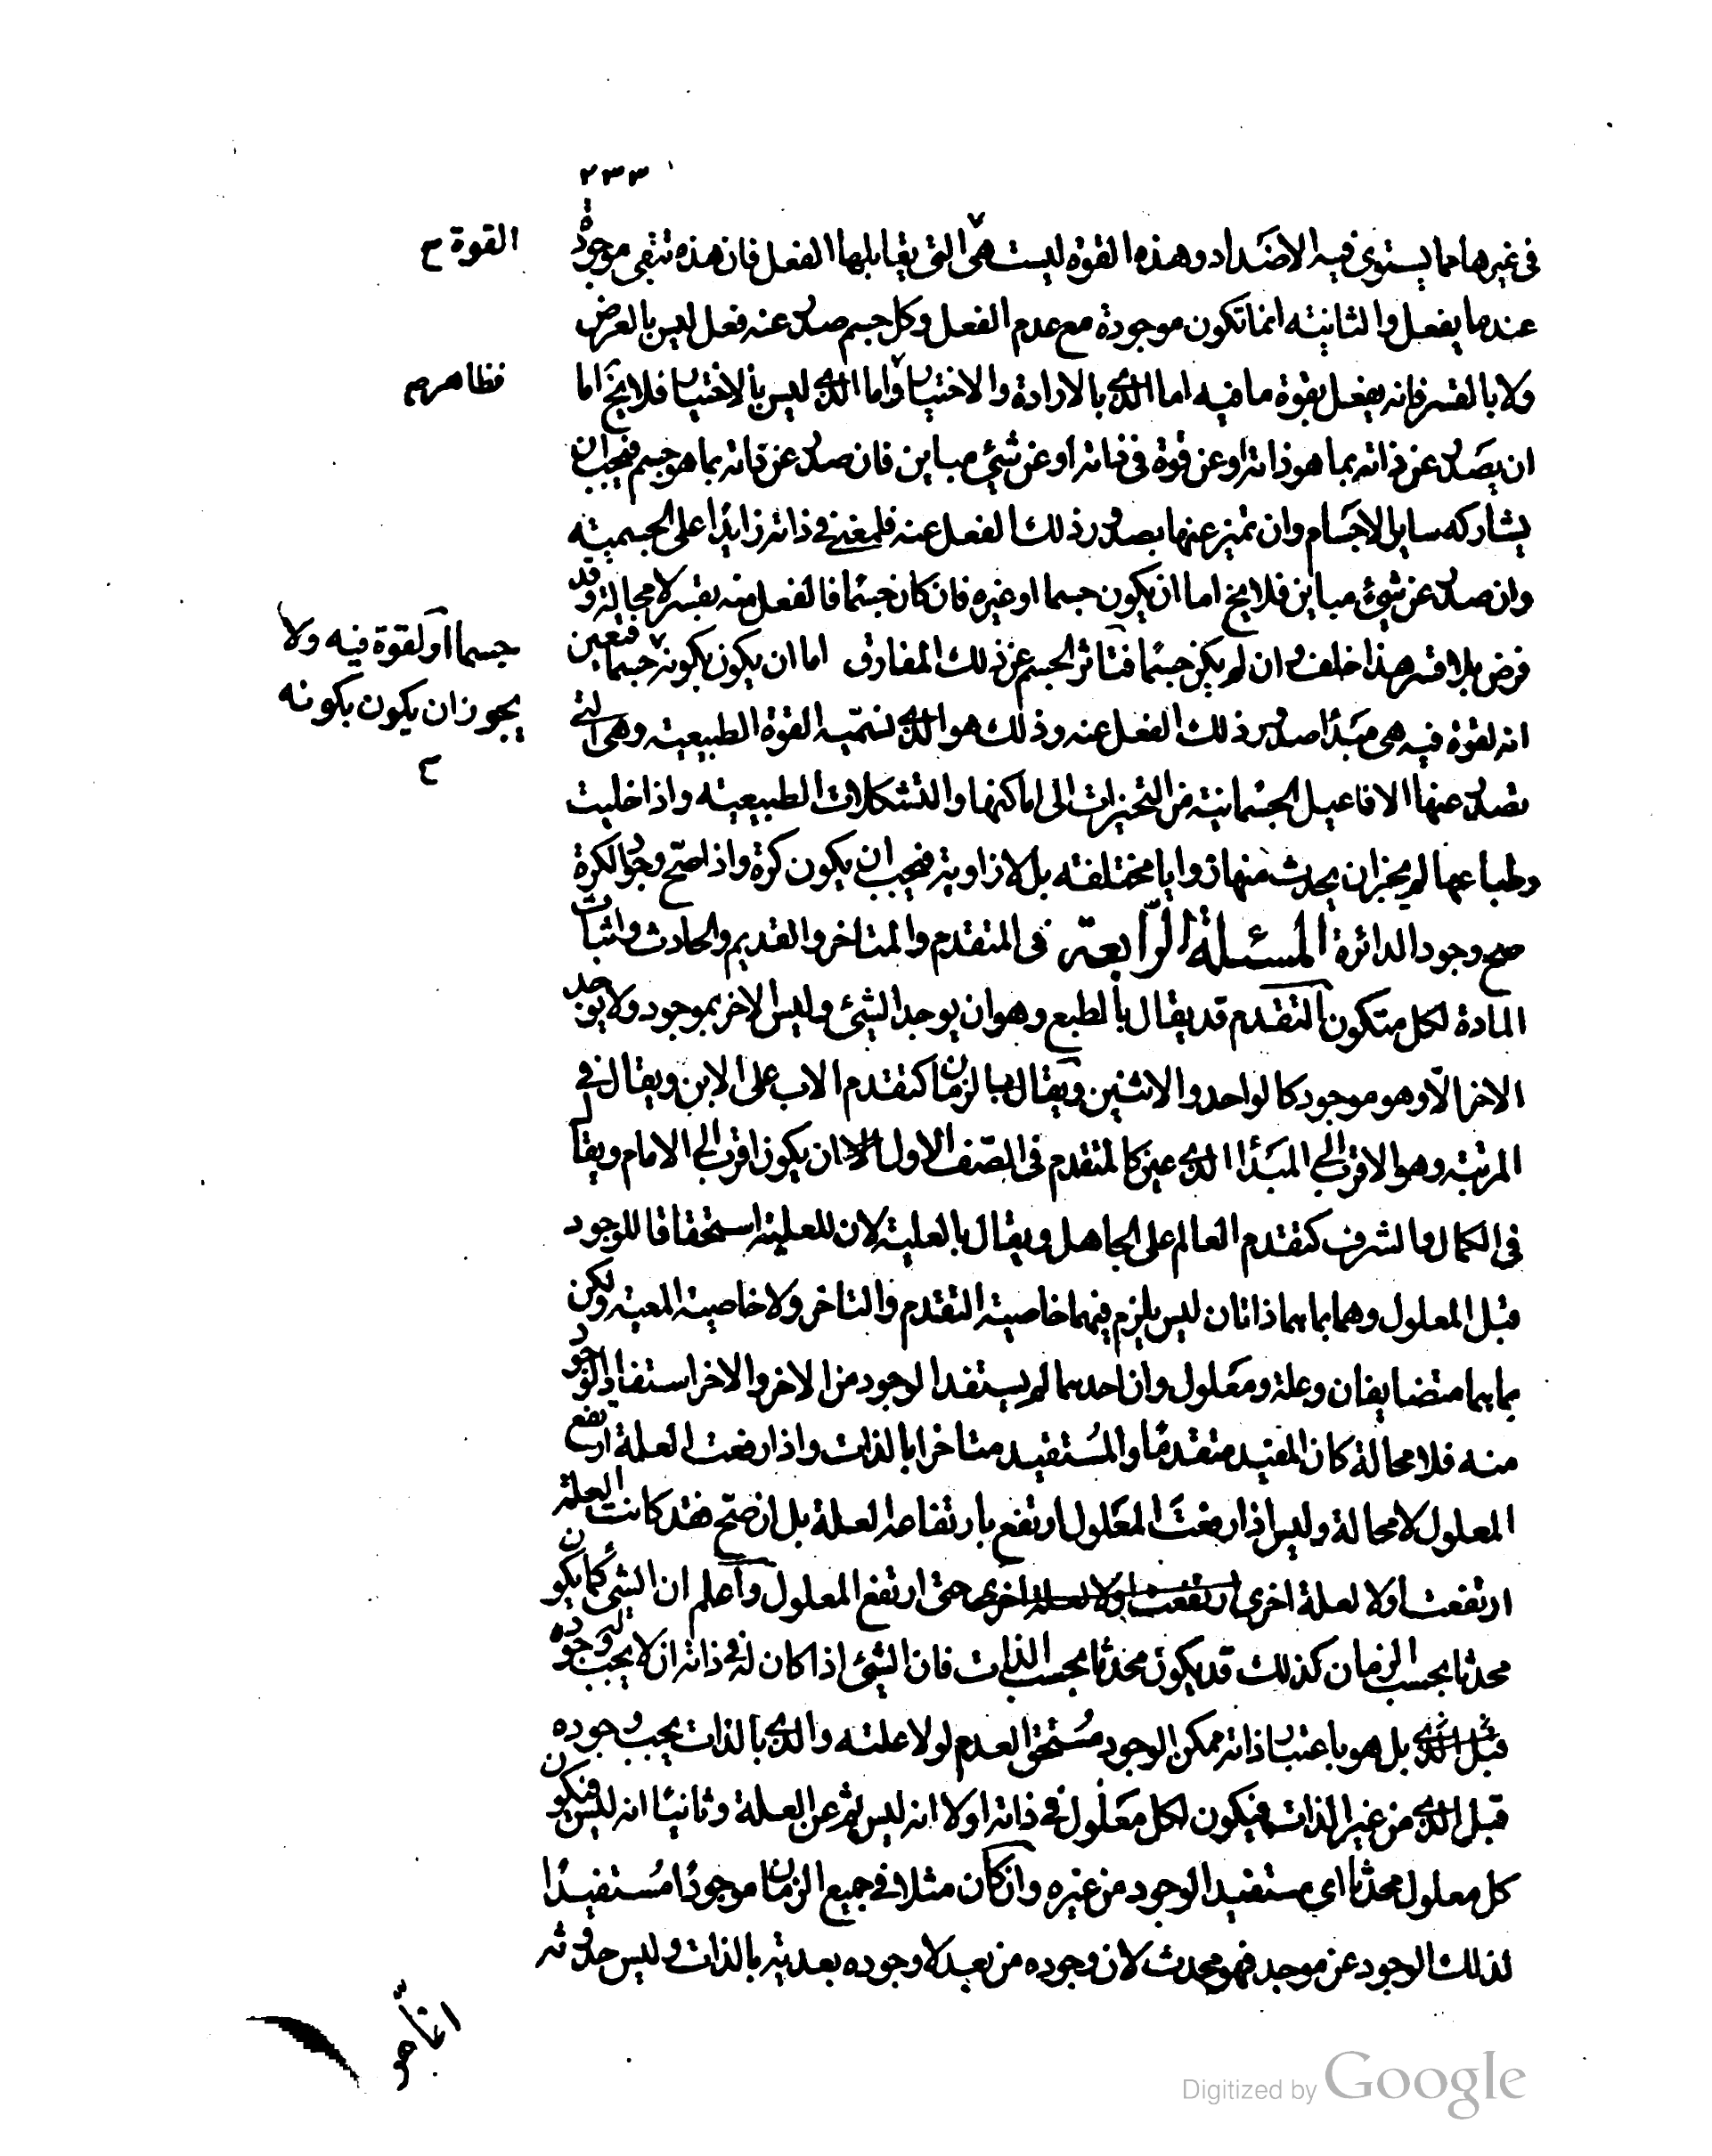 ٢٣٣
فى غيرها مما يستوى فيه الاضداد وهذه القوة ليست هى التى يقابلها الفعل فان هذه تبقى موجودة
القوة صح
عندما يفعل والثانية انما تكون موجودة مع عدم الفعل وكل جسم صدر عنه فعل ليس بالعرض
ولا بالقسر فانه يفعل بقوة ما فيه اما الذى بالارادة والاختيار واما الذى ليس بالاختيار فلا يخ اما
فظاهر صح
ان يصدر عن ذاته بما هو ذاته او عن قوة فى ذاته او عن شئ مباين فان صدر عن ذاته بما هو جسم فيجب ان
يشاركه ساير الاجسام وان تميز عنها بصدور ذلك الفعل عنه فلمعنى فى ذاته زايدا على الجسمية
وان صدر عن شئ مباين فلا يخ اما ان يكون جسما او غيره فان كان جسما فالفعل منه بقسر لا محالة وقد
فرض بلا قسر هذا خلف وان لم يكن جسما فتاثر الجسم عن ذلك المفارق اما ان يكون بكونه جسما فتعين
جسما او لقوة فيه ولا
يجوز ان يكون بكونه
صح
انه لقوة فيه هى مبدا صدور ذلك الفعل عنه وذلك هو الذى نسميه القوة الطبيعية وهى التى
تصدر عنها الافاعيل الجسمانية من التحيزات الى اماكنها والتشكلات الطبيعية واذا خليت
وطباعها لم يجز ان يحدث منها زوايا مختلفة بل لا زاوية فيجب ان يكون كرة واذا صح وجود الكرة
صح وجود الدائرة المسئلة الرابعة فى المتقدم والمتاخر والقديم والحادث واثبات
المادة لكل متكون التقدم قد يقال بالطبع وهو ان يوجد الشئ وليس الاخر بموجود ولا يوجد
الاخر الا وهو موجود كالواحد والاثنين ويقال بالزمان كتقدم الاب على الابن ويقال فى
المرتبة وهو الاقرب الى المبدا الذى عين كالمتقدم فى الصف الاول ان يكون اقرب الى الامام ويقال
فى الكمال والشرف كتقدم العالم على الجاهل ويقال بالعلية لان للعلية استحقاقا للوجود
قبل المعلول وهما بما هما ذاتان ليس يلزم فيهما خاصية التقدم والتاخر ولا خاصية المعية ولكن
بما هما متضايفان وعلة ومعلول وان احدهما لم يستفد الوجود من الاخر والاخر استفاد الوجود
منه فلا محالة كان المفيد متقدما والمستفيد متاخرا بالذات واذا رفعت العلة ارتفع
المعلول لا محالة وليس اذا رفعت المعلول ارتفع بارتفاعه العلة بل ان صح فقد كانت العلة
ارتفعت اولا لعلة اخرى ارتفعت اولا لعلة اخرى حتى ارتفع المعلول واعلم ان الشئ كما يكون
محدثا بحسب الزمان كذلك قد يكون محدثا بحسب الذات فان الشئ اذا كان له فى ذاته ان لا يجب له وجوده
قبل الذى بل هو باعتبار ذاته ممكن الوجود مستحق العدم لولا علته والذى بالذات يجب وجوده
قبل الذى من غير الذات فيكون لكل معلول فى ذاته اولا انه ليس ثم عن العلة وثانيا انه ليس فيكون
كل معلول محدثا اى مستفيد الوجود من غيره وان كان مثلا فى جميع الزمان موجودا مستفيدا
لذلك الوجود عن موجد فهو محدث لان وجوده من بعد لا وجوده بعدية بالذات وليس حدوثه
انما هو
Digitized by Google